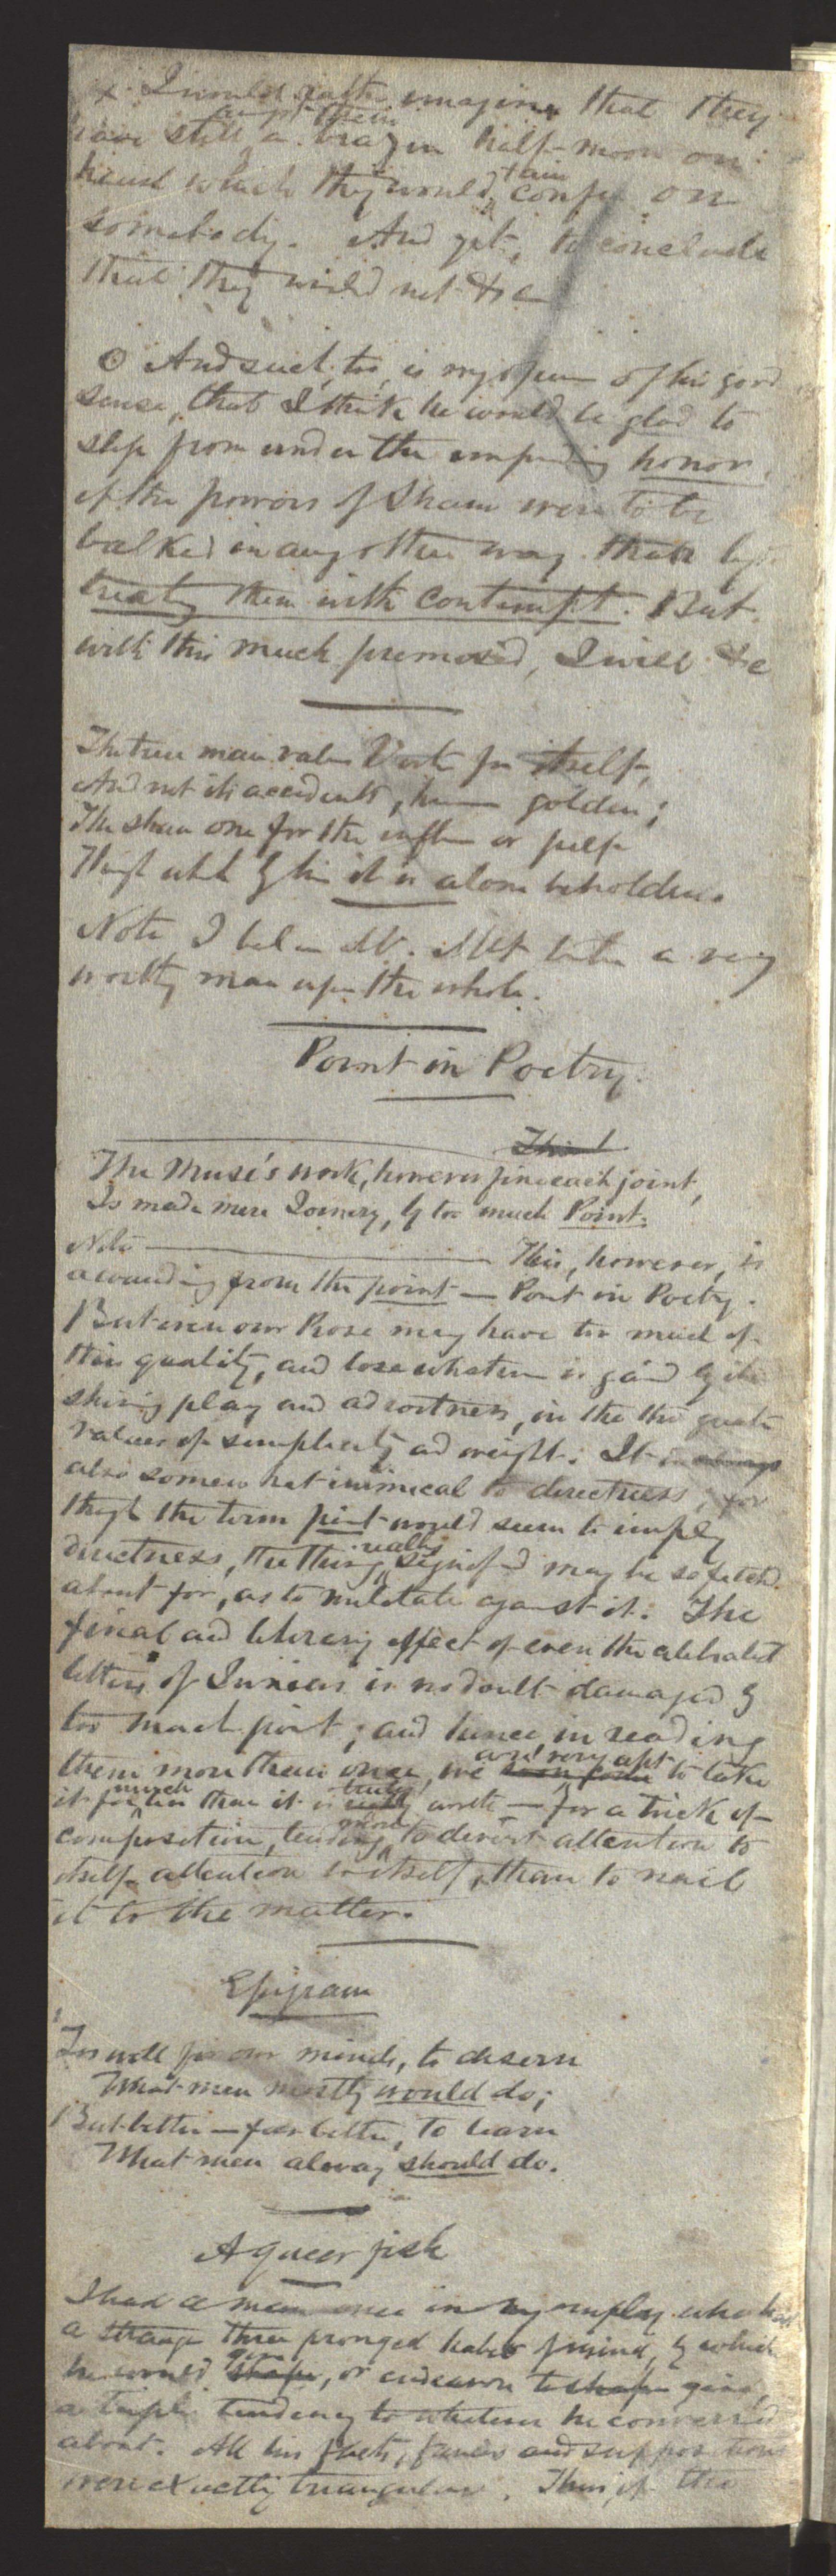 x I would rather imagine that they
amongst them
have still a brazen half-moon on
fain
hand which they would confer on
somebody. And yet, to conclude
that they would not &c
O And such, too, is my opinion of his good
sense, that I think he would be glad to
slip from under the impending honor,
if the powers of Sham were to be
balked in any other way than by
treating them with contempt. But
with this much premised, I will &c
The true man values Worth for itself,
And not its accidents, however golden;
The sham one for the influence or pelf
Note I believe Mr. to be a very
worthy man upon the whole.
Point in Poetry.
The Muse's work, however fine each joint,
Is made mere Joinery, by too much Point.
Note — This, however, is
a wounding from the point — Point in Poetry.
But even our Prose may have too much of
this quality, and lose whatever is gain'd by its
shining play and adroitness, in the two greater
values of simplicity and weight. It is always
also somewhat inimical to directness; for
though the term point would seem to imply
really
directness, the thing signified may be so fetched
about for, as to militate against it. The
final and literary effect of even the celebrated
letters of Junius is no doubt damaged by
too much point; and hence, in reading
are very apt
them more than once, we to take
much truly
it for less than it is really worth — for a trick of
more
composition, tending to divert attention to
itself attention to itself, than to nail
it to the matter.
Epigram
'Tis well for our minds, to discern
What men mostly would do;
But better — far better, to learn
What men alway should do.
A queer fish
I had a man once in my employ who had
a strange three pronged habit of mind, by which
give
he would shape, or endeavor to shape give
a triple tendency to whatever he conversed
about. All his facts, fancies and suppositions
were exactly triangular. Thus, if the